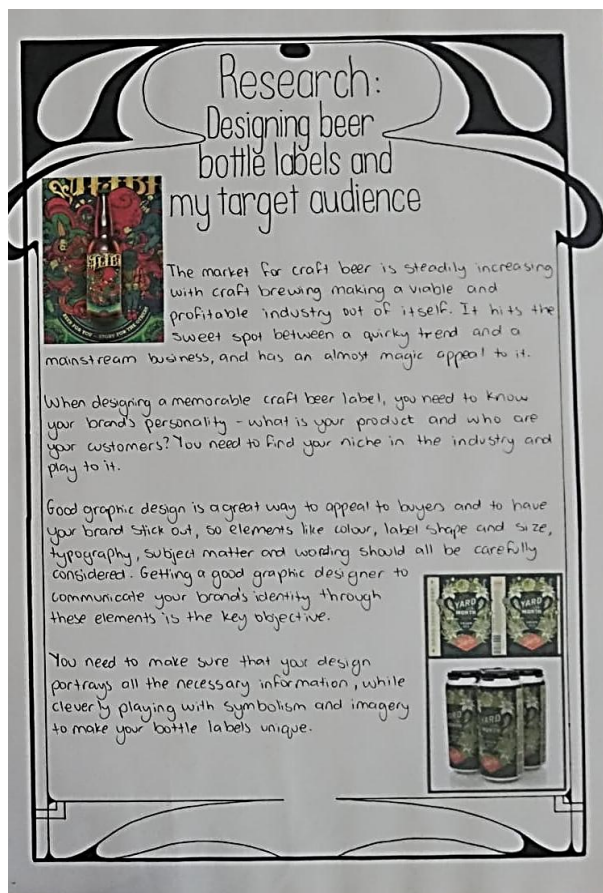 Research:
Designing beer
bottle labels and
my target audience
The market for craft beer is steadily increasing
with craft brewing making a viable and
profitable industry out of itself. It hits the
sweet spot between a quirky trend and a
mainstream business, and has an almost magic appeal to it.
When designing a memorable craft beer label, you need to know
your brand's personality - what is your product and who are
your customers? You need to find your niche in the industry and
play to it.
Good graphic design is a great way to appeal to buyers and to have
your brand stick out, so elements like colour, label shape and size,
typography, subject matter and wording should all be carefully
considered. Getting a good graphic designer to
communicate your brand's identity through
these elements is the key objective.
YARD
YARD
MONTH
MONTH
You need to make sure that your design
portrays all the necessary information, while
cleverly playing with symbolism and imagery
to make your bottle labels unique.
YARD